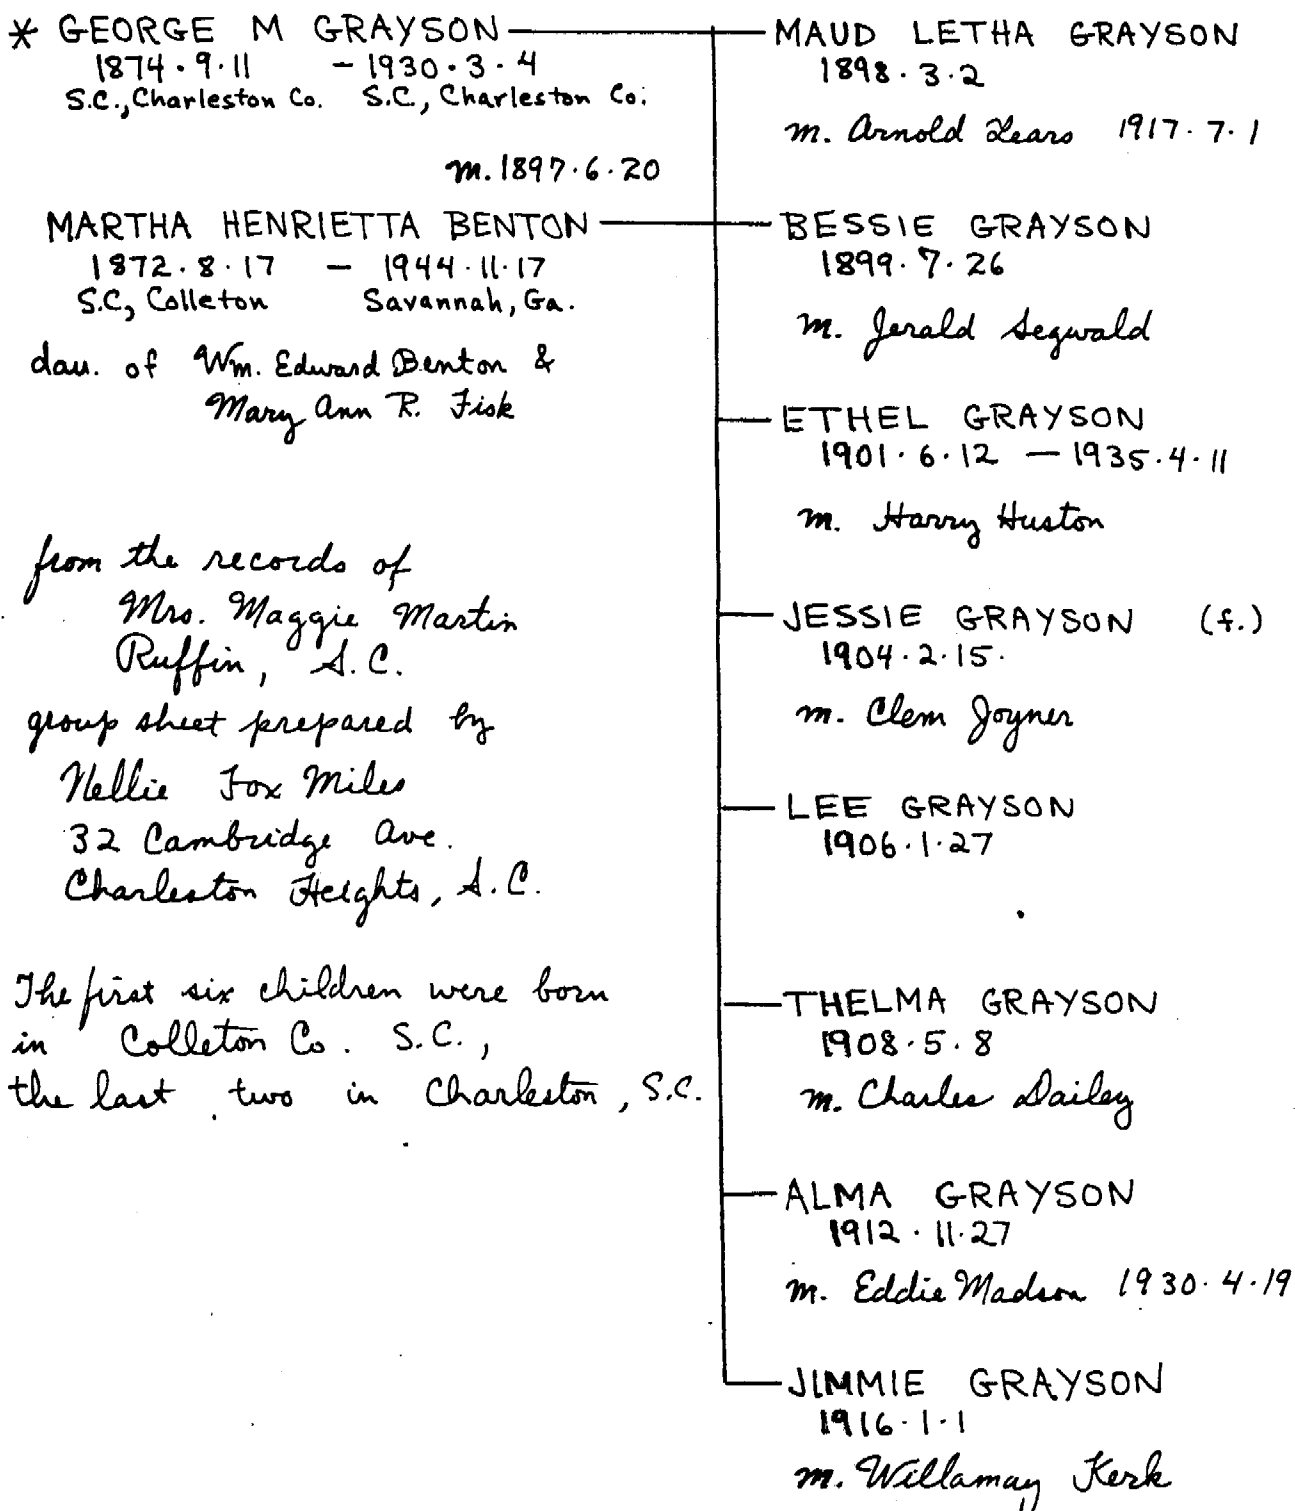 * GEORGE M GRAYSON
1874·9·11 – 1930·3·4
S.C., Charleston Co. S.C., Charleston Co.
m. 1897·6·20
MARTHA HENRIETTA BENTON
1872·8·17 – 1944·11·17
S.C, Colleton Savannah, Ga.
dau. of Wm. Edward Benton &
Mary Ann R. Fisk
from the records of
Mrs. Maggie Martin
Ruffin, S.C.
group sheet prepared by
Nellie Fox Miles
32 Cambridge Ave.
Charleston Heights, S.C.
The first six children were born
in Colleton Co. S.C.,
the last two in Charleston, S.C.
MAUD LETHA GRAYSON
1898·3·2
m. Arnold Lears 1917·7·1
BESSIE GRAYSON
1899·7·26
m. Jerald Segwald
ETHEL GRAYSON
1901·6·12 – 1935·4·11
m. Harry Huston
JESSIE GRAYSON (f.)
1904·2·15·
m. Clem Joyner
LEE GRAYSON
1906·1·27
THELMA GRAYSON
1908·5·8
m. Charles Dailey
ALMA GRAYSON
1912·11·27
m. Eddie Madson 1930·4·19
JIMMIE GRAYSON
1916·1·1
m. Willamay Kerk